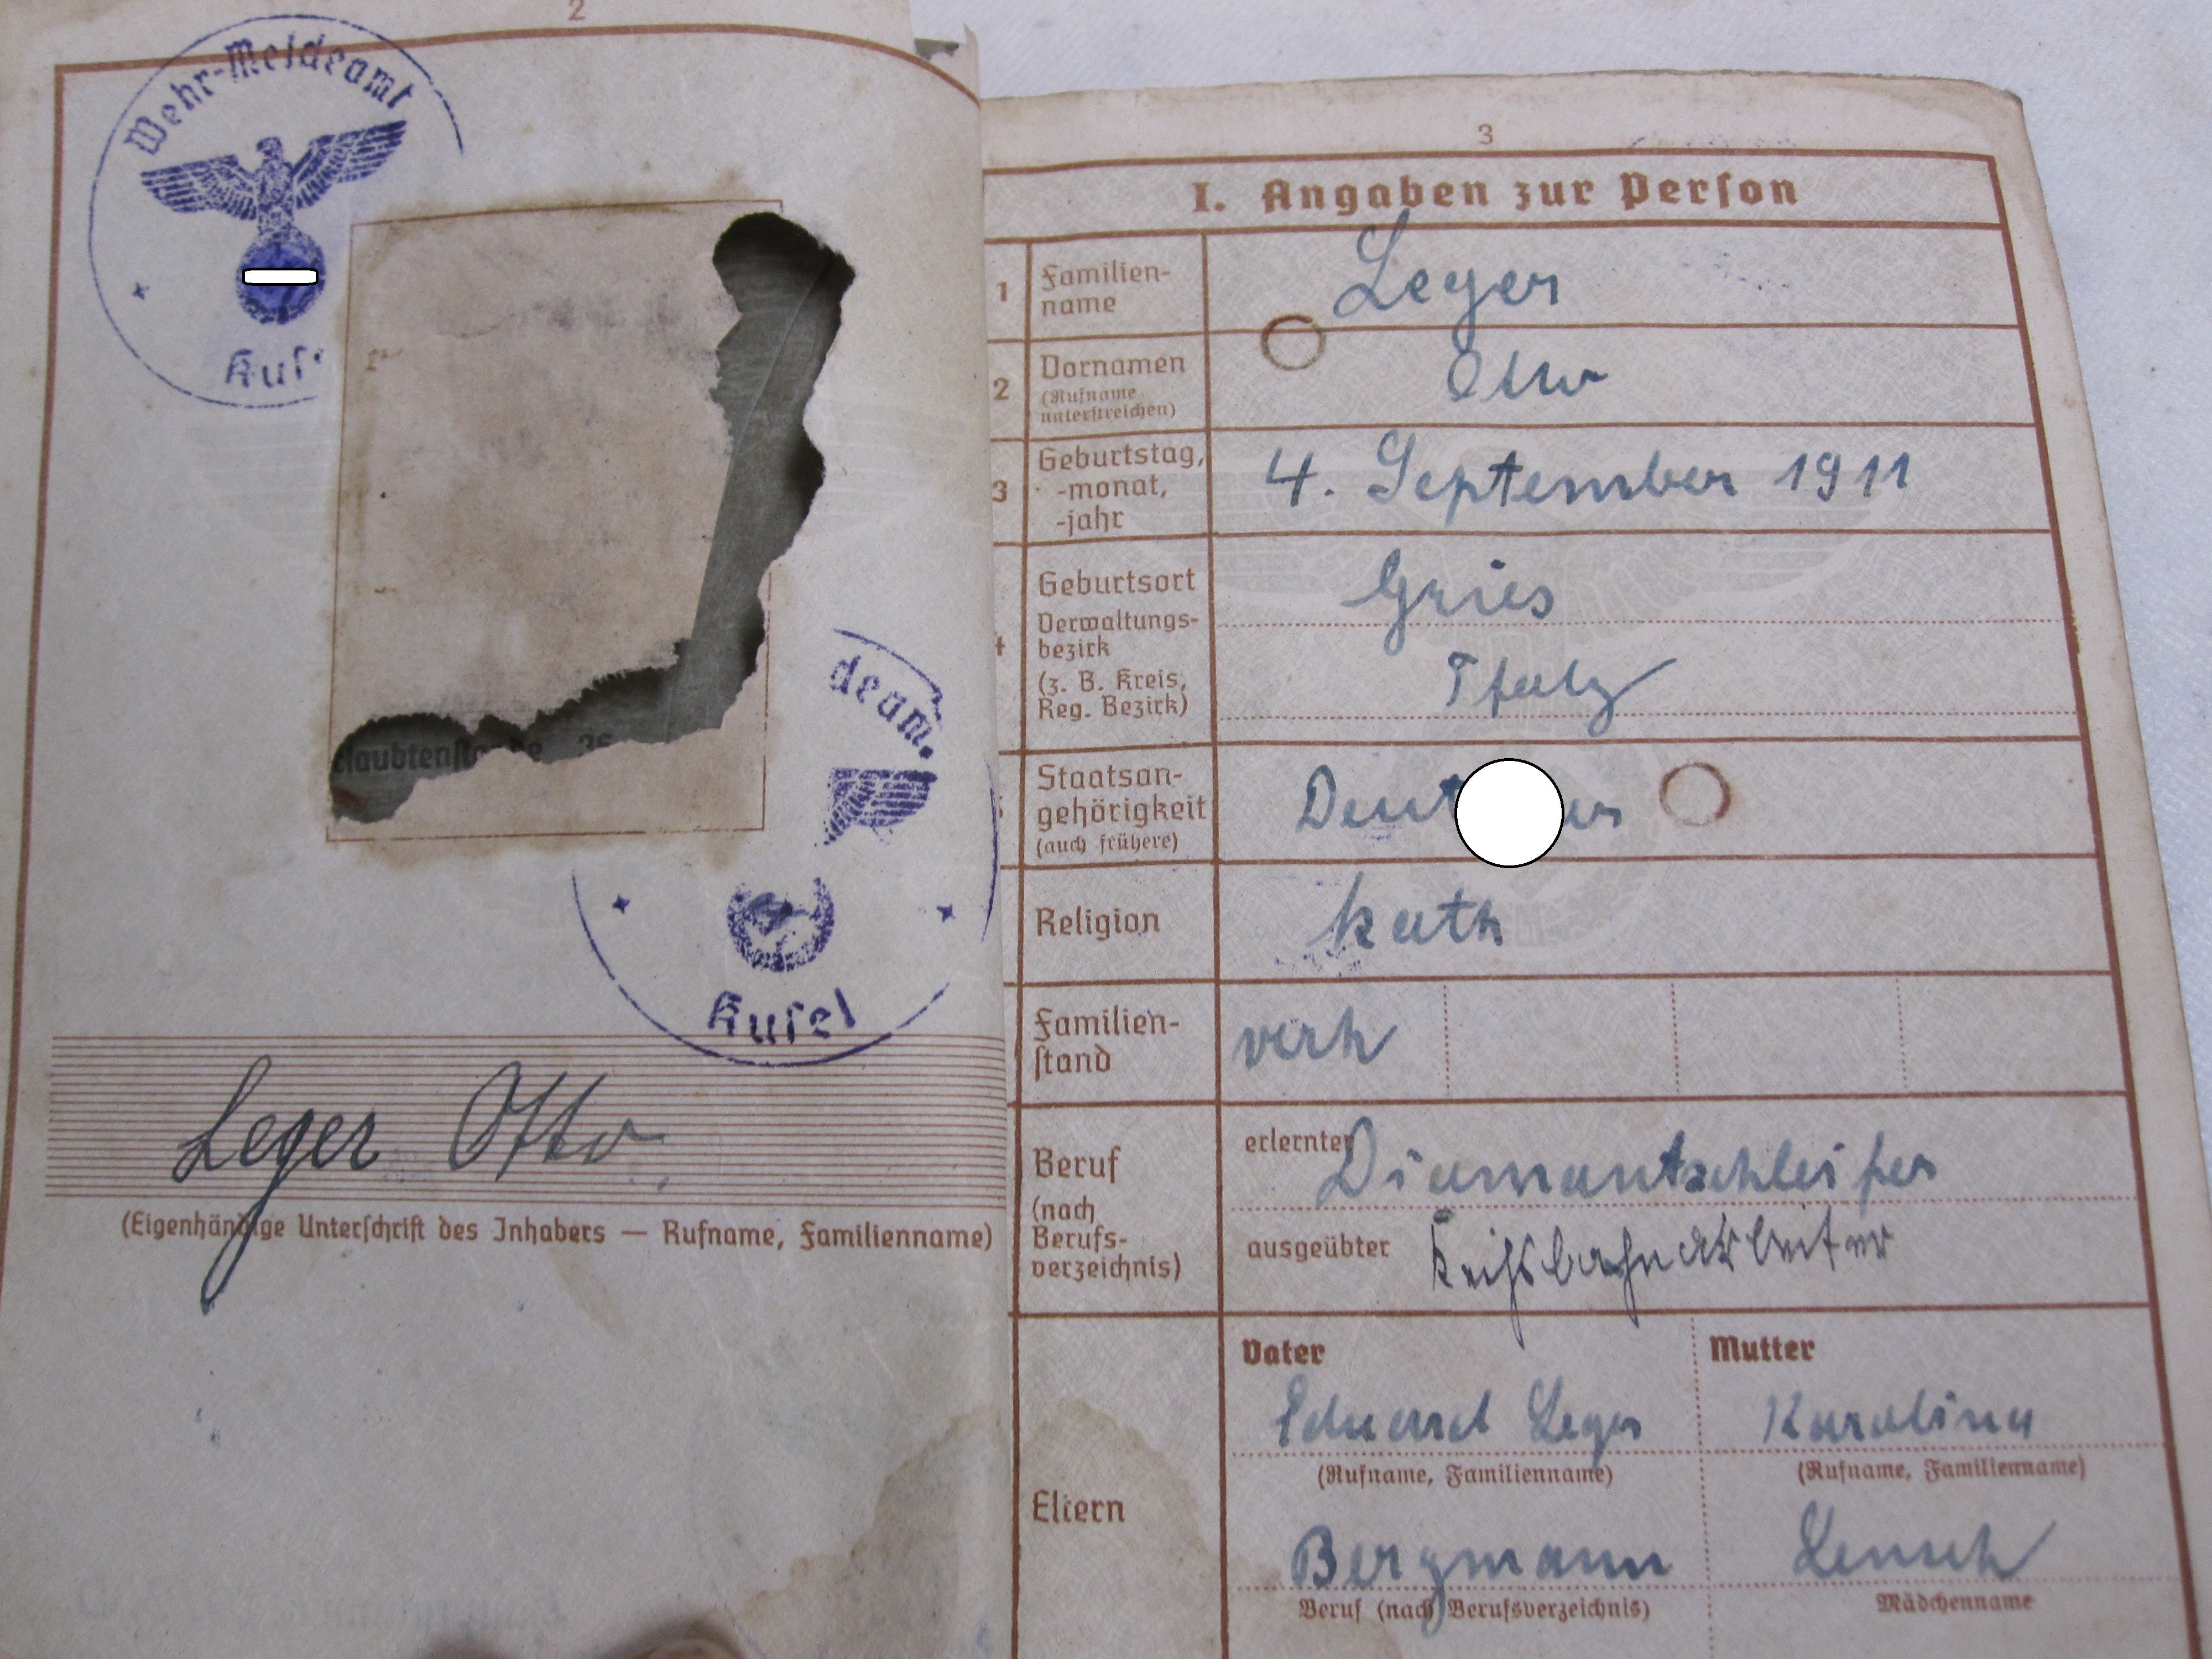 2
Wehr-Meldeamt
Kus
deam
Kusel
Leger Otto
(Eigenhändige Unterschrift des Inhabers — Rufname, Familienname)
3
I. Angaben zur Person
1
Familien-
name
Leger
2
Vornamen
(Rufname
unterstreichen)
Otto
3
Geburtstag,
-monat,
-jahr
4. September 1911
Geburtsort
Verwaltungs-
bezirk
(z. B. Kreis,
Reg. Bezirk)
Gries
Pfalz
Staatsan-
gehörigkeit
(auch frühere)
Religion
kath
Familien-
stand
verh
Beruf
(nach
Berufs-
verzeichnis)
erlernter Diamantschleifer
ausgeübter Reichsbahnarbeiter
Eltern
Vater
Eduard Leger
(Rufname, Familienname)
Bergmann
Beruf (nach Berufsverzeichnis)
Mutter
Karolina
(Rufname, Familienname)
Mädchenname